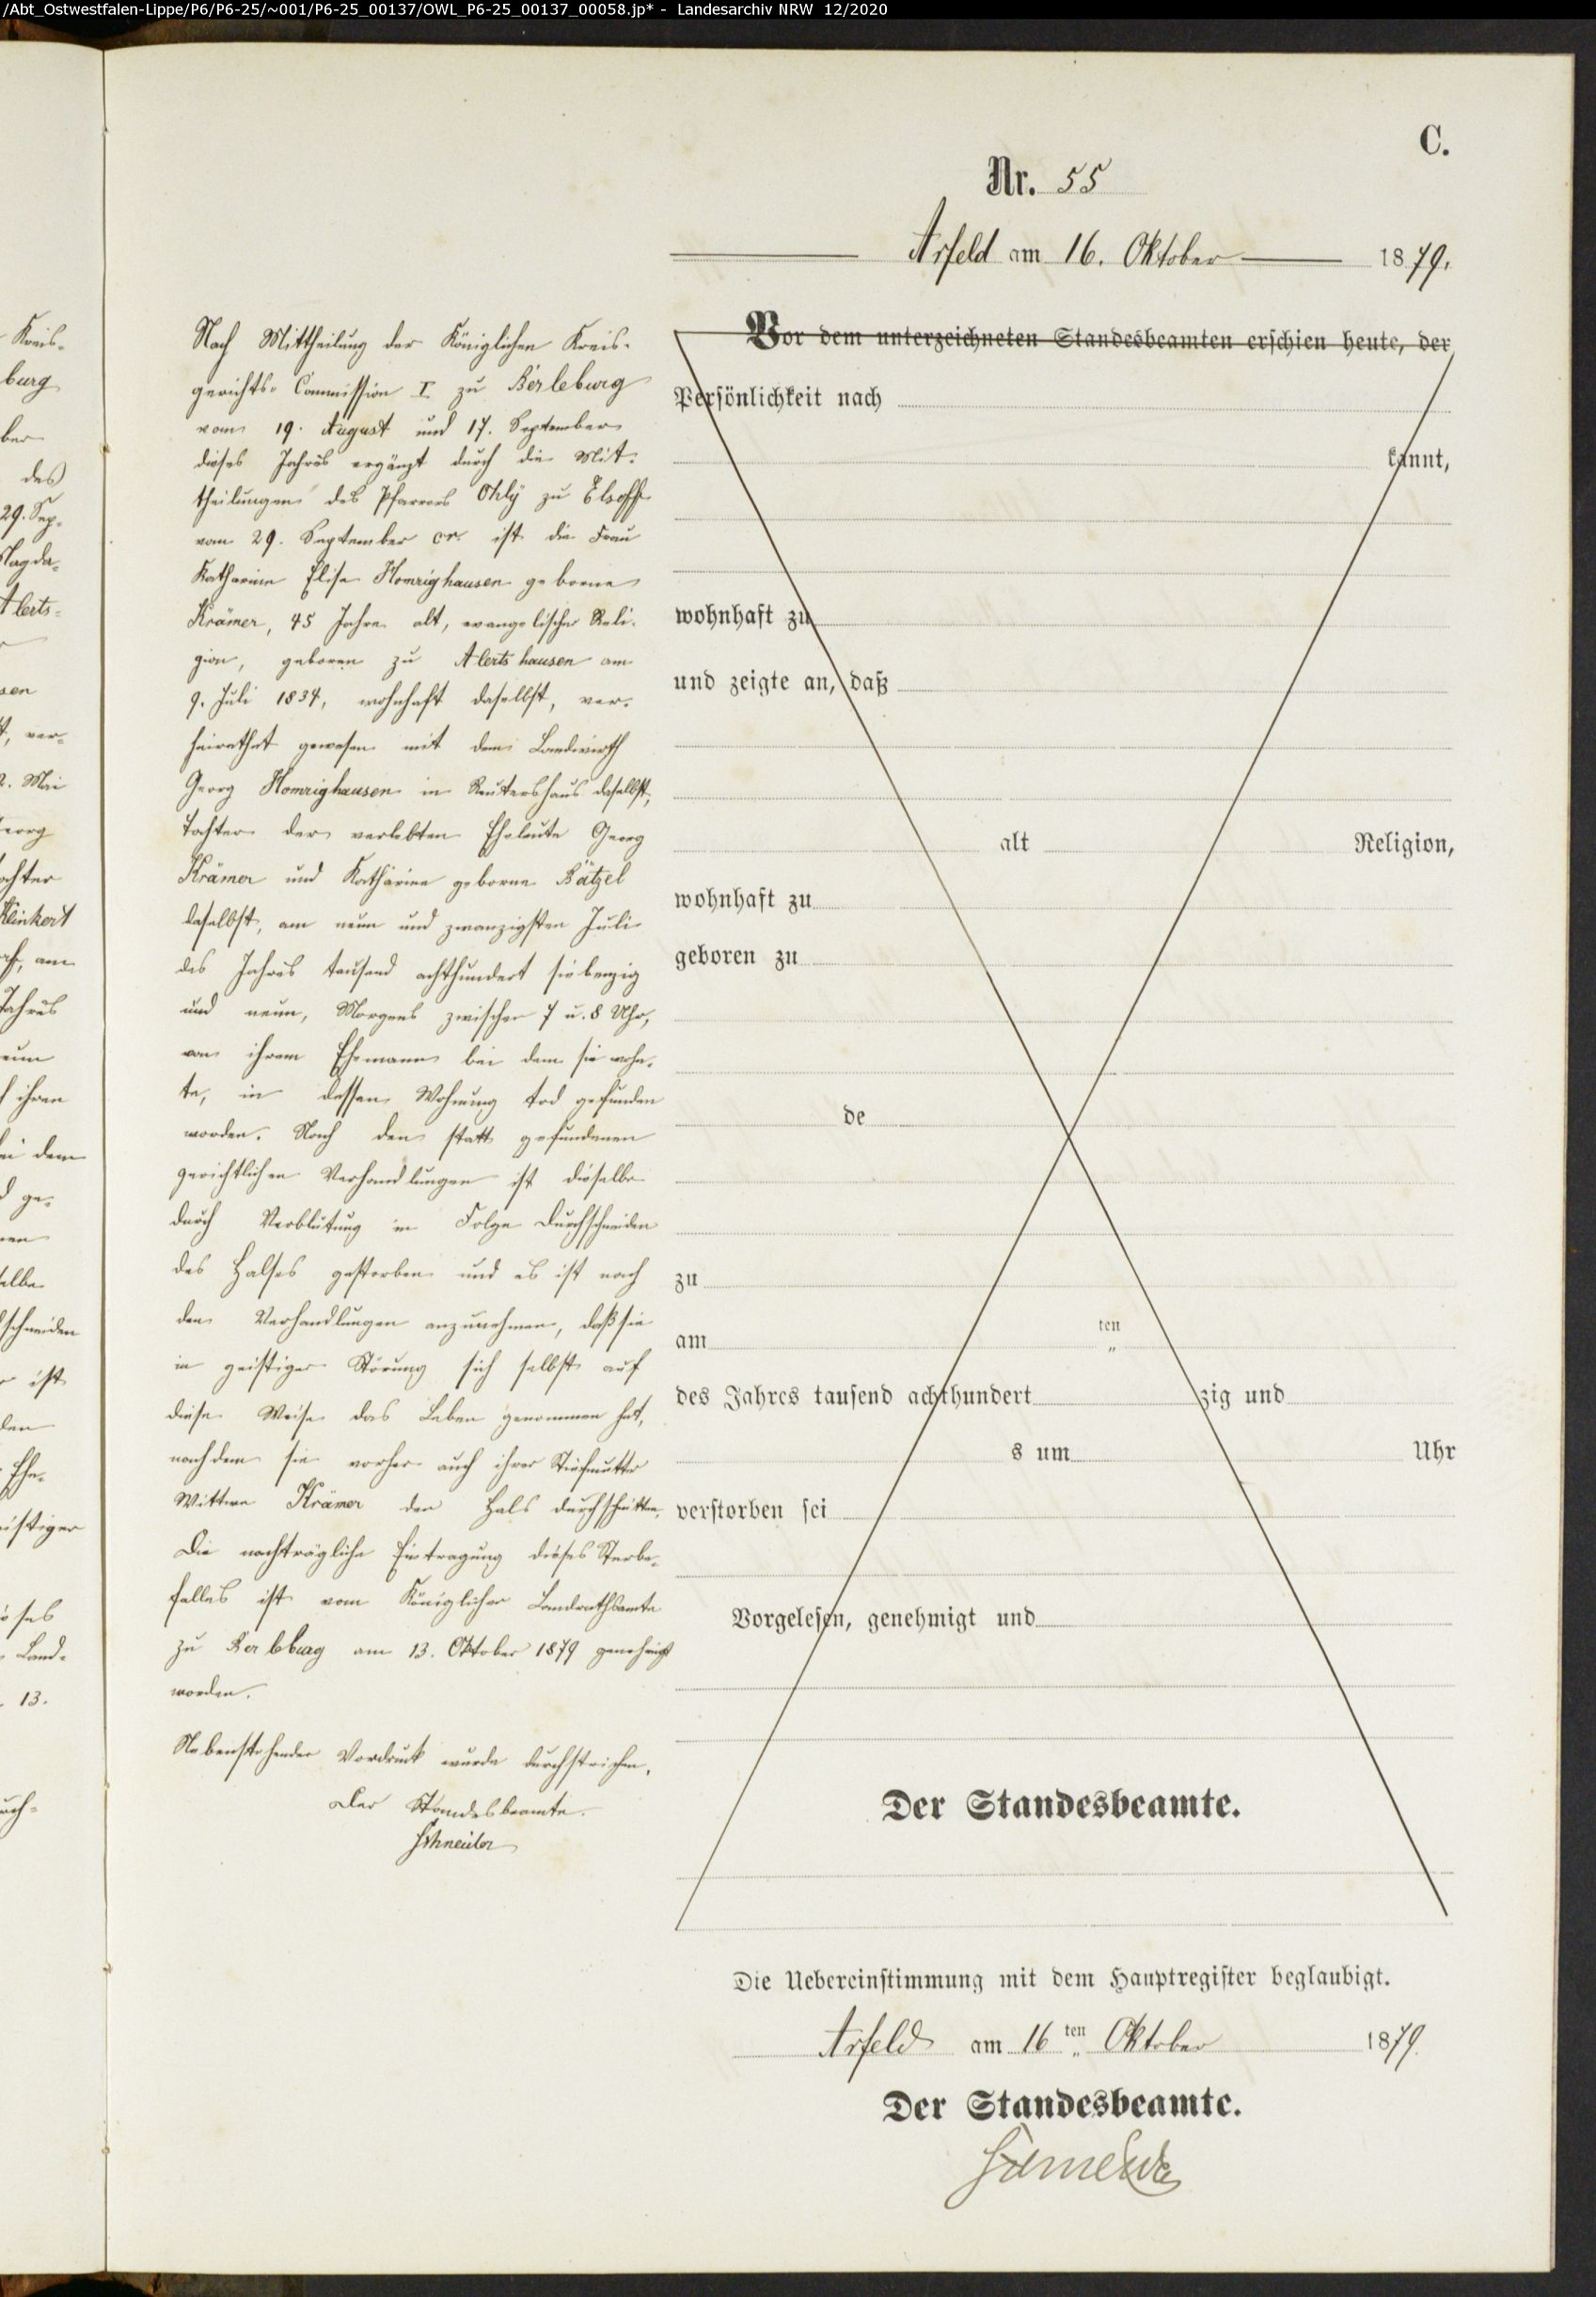 /Abt_Ostwestfalen-Lippe/P6/P6-25/~001/P6-25_00137/OWL_P6-25_00137_00058.jp* - Landesarchiv NRW 12/2020
C.
Nr. 55
Arfeld am 16. Oktober 1879.
Nach Mittheilung der Königlichen Kreis-
gerichts-Commission I zu Berleburg
vom 19. August und 17. September
dieses Jahres ergänzt durch die Mit-
theilungen des Pfarrers Ohly zu Elsoff
vom 29. September cr. ist die Frau
Katharine Elise Homrighausen geborne
Krämer, 45 Jahre alt, evangelischer Reli-
gion, geboren zu Alertshausen am
9. Juli 1834, wohnhaft daselbst, ver-
heirathet gewesen mit dem Landwirth
Georg Homrighausen in Reutershaus daselbst,
Tochter der verlebten Eheleute Georg
Krämer und Katharine geborne Bätzel
daselbst, am neun und zwanzigsten Juli
des Jahres tausend achthundert siebenzig
und neun, Morgens zwischen 7 u. 8 Uhr,
von ihrem Ehemann bei dem sie wohn-
te, in dessen Wohnung tod gefunden
worden. Nach den statt gefundenen
gerichtlichen Verhandlungen ist dieselbe
durch Verblutung in Folge Durchschneiden
des Halses gestorben und es ist nach
den Verhandlungen anzunehmen, daß sie
in geistiger Störung sich selbst auf
diese Weise das Leben genommen hat,
nachdem sie vorher auch ihrer Stiefmutter
Wittwe Krämer den Hals durchschnitten.
Die nachträgliche Eintragung dieses Sterbe-
falles ist vom Königlichen Landrathsamte
zu Berleburg am 13. Oktober 1879 genehmigt
worden.
Nebenstehender Vordruck wurde durchstrichen.
Der Standesbeamte.
Schneider
Vor dem unterzeichneten Standesbeamten erschien heute, der
Persönlichkeit nach
kannt,
wohnhaft zu
und zeigte an, daß
alt Religion,
wohnhaft zu
geboren zu
de
zu
am ten
des Jahres tausend achthundert zig und
s um Uhr
verstorben sei
Vorgelesen, genehmigt und
Der Standesbeamte.
Die Uebereinstimmung mit dem Hauptregister beglaubigt.
Arfeld am 16ten Oktober 1879
Der Standesbeamte.
Schneider